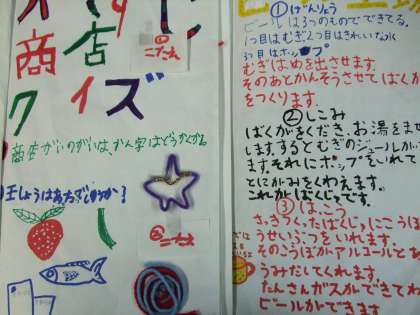 商店
クイズ
①こたえ
商店がいのがいは、かん字はどうかくかな
②こたえ
①げんりょう
ビールは3つのものでできてる。
1つ目はむぎ2つ目はきれいな水
3つ目はホップ
むぎはめを出させます。
そのあとかんそうさせてばくが
をつくります。
②しこみ
ばくがをくだき、お湯をま
します。するとむぎのジュールが
ます。それにホップをいれて
とにがみをくわえます。
これがばくじゅです。
③はっこう
さっきつくったばくじゅにこう
うせいぶつをいれます。
そのこうぼがアルコールと
うみだしてくれます。
たんさんガスができてわ
ビールができます